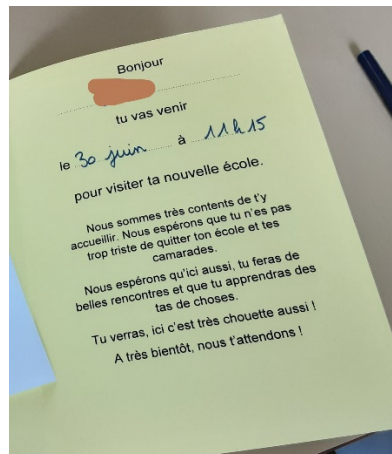 Bonjour
tu vas venir
le 30 juin à 11h15
pour visiter ta nouvelle école.
Nous sommes très contents de t'y
accueillir. Nous espérons que tu n'es pas
trop triste de quitter ton école et tes
camarades.
Nous espérons qu'ici aussi, tu feras de
belles rencontres et que tu apprendras des
tas de choses.
Tu verras, ici c'est très chouette aussi !
A très bientôt, nous t'attendons !